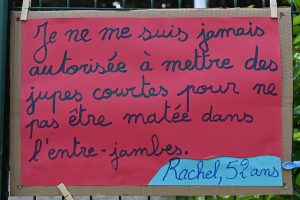 Je ne me suis jamais
autorisée à mettre des
jupes courtes pour ne
pas être matée dans
l'entre-jambes.
Rachel, 52 ans